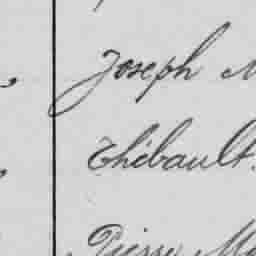 Joseph
Thébault.
Pierre